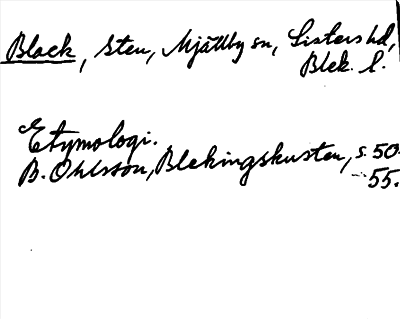 Black, Sten, Mjällby sn, Listers hd,
Blek. l.
Etymologi.
B. Ohlsson, Blekingskusten, s. 50-
55.